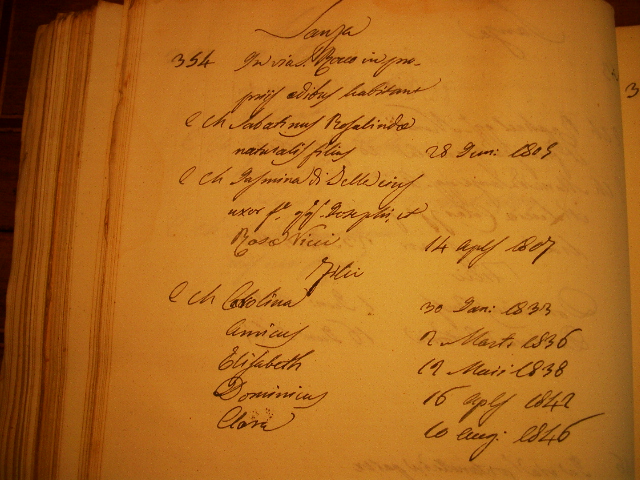 Sanza
354 In via S. Roco in pro-
prijs ædibus habitant
c ch Sabatinus Rosalindæ
naturalis filius 28 Juni: 1803
c ch Jasmina di Delle eius
uxor fa. qq. Josephi, et
Rosæ Vicci 14 apls 1807
Filii
c ch Carolina 30 Jan: 1833
Amicus 2 Marti: 1836
Elisabeth 12 Maii 1838
Dominicus 16 apls 1842
Clara 10 aug: 1846
3